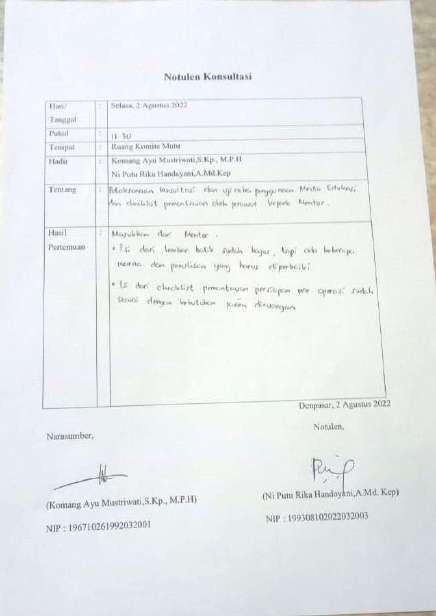 Notulen Konsultasi
Hari/ : Selasa, 2 Agustus 2022
Tanggal
Pukul : 11.30
Tempat : Ruang Komite Mutu
Hadir : Komang Ayu Mustriwati,S.Kp., M.P.H
Ni Putu Rika Handayani,A.Md.Kep
Tentang : Pelaksanaan konsultasi dan uji coba penggunaan Media Edukasi
dan checklist pemantauan oleh perawat kepada Mentor.
Hasil : Masukkan dari Mentor.
Pertemuan
• Isi dari lembar balik sudah bagus, tapi ada beberapa
warna dan penulisan yang harus diperbaiki
• Isi dari checklist pemantauan persiapan pre operasi sudah
sesuai dengan kebutuhan pasien diruangan
Denpasar, 2 Agustus 2022
Narasumber,
Notulen,
(Komang Ayu Mustriwati,S.Kp., M.P.H)
(Ni Putu Rika Handayani,A.Md. Kep)
NIP : 196710261992032001
NIP : 199308102022032003